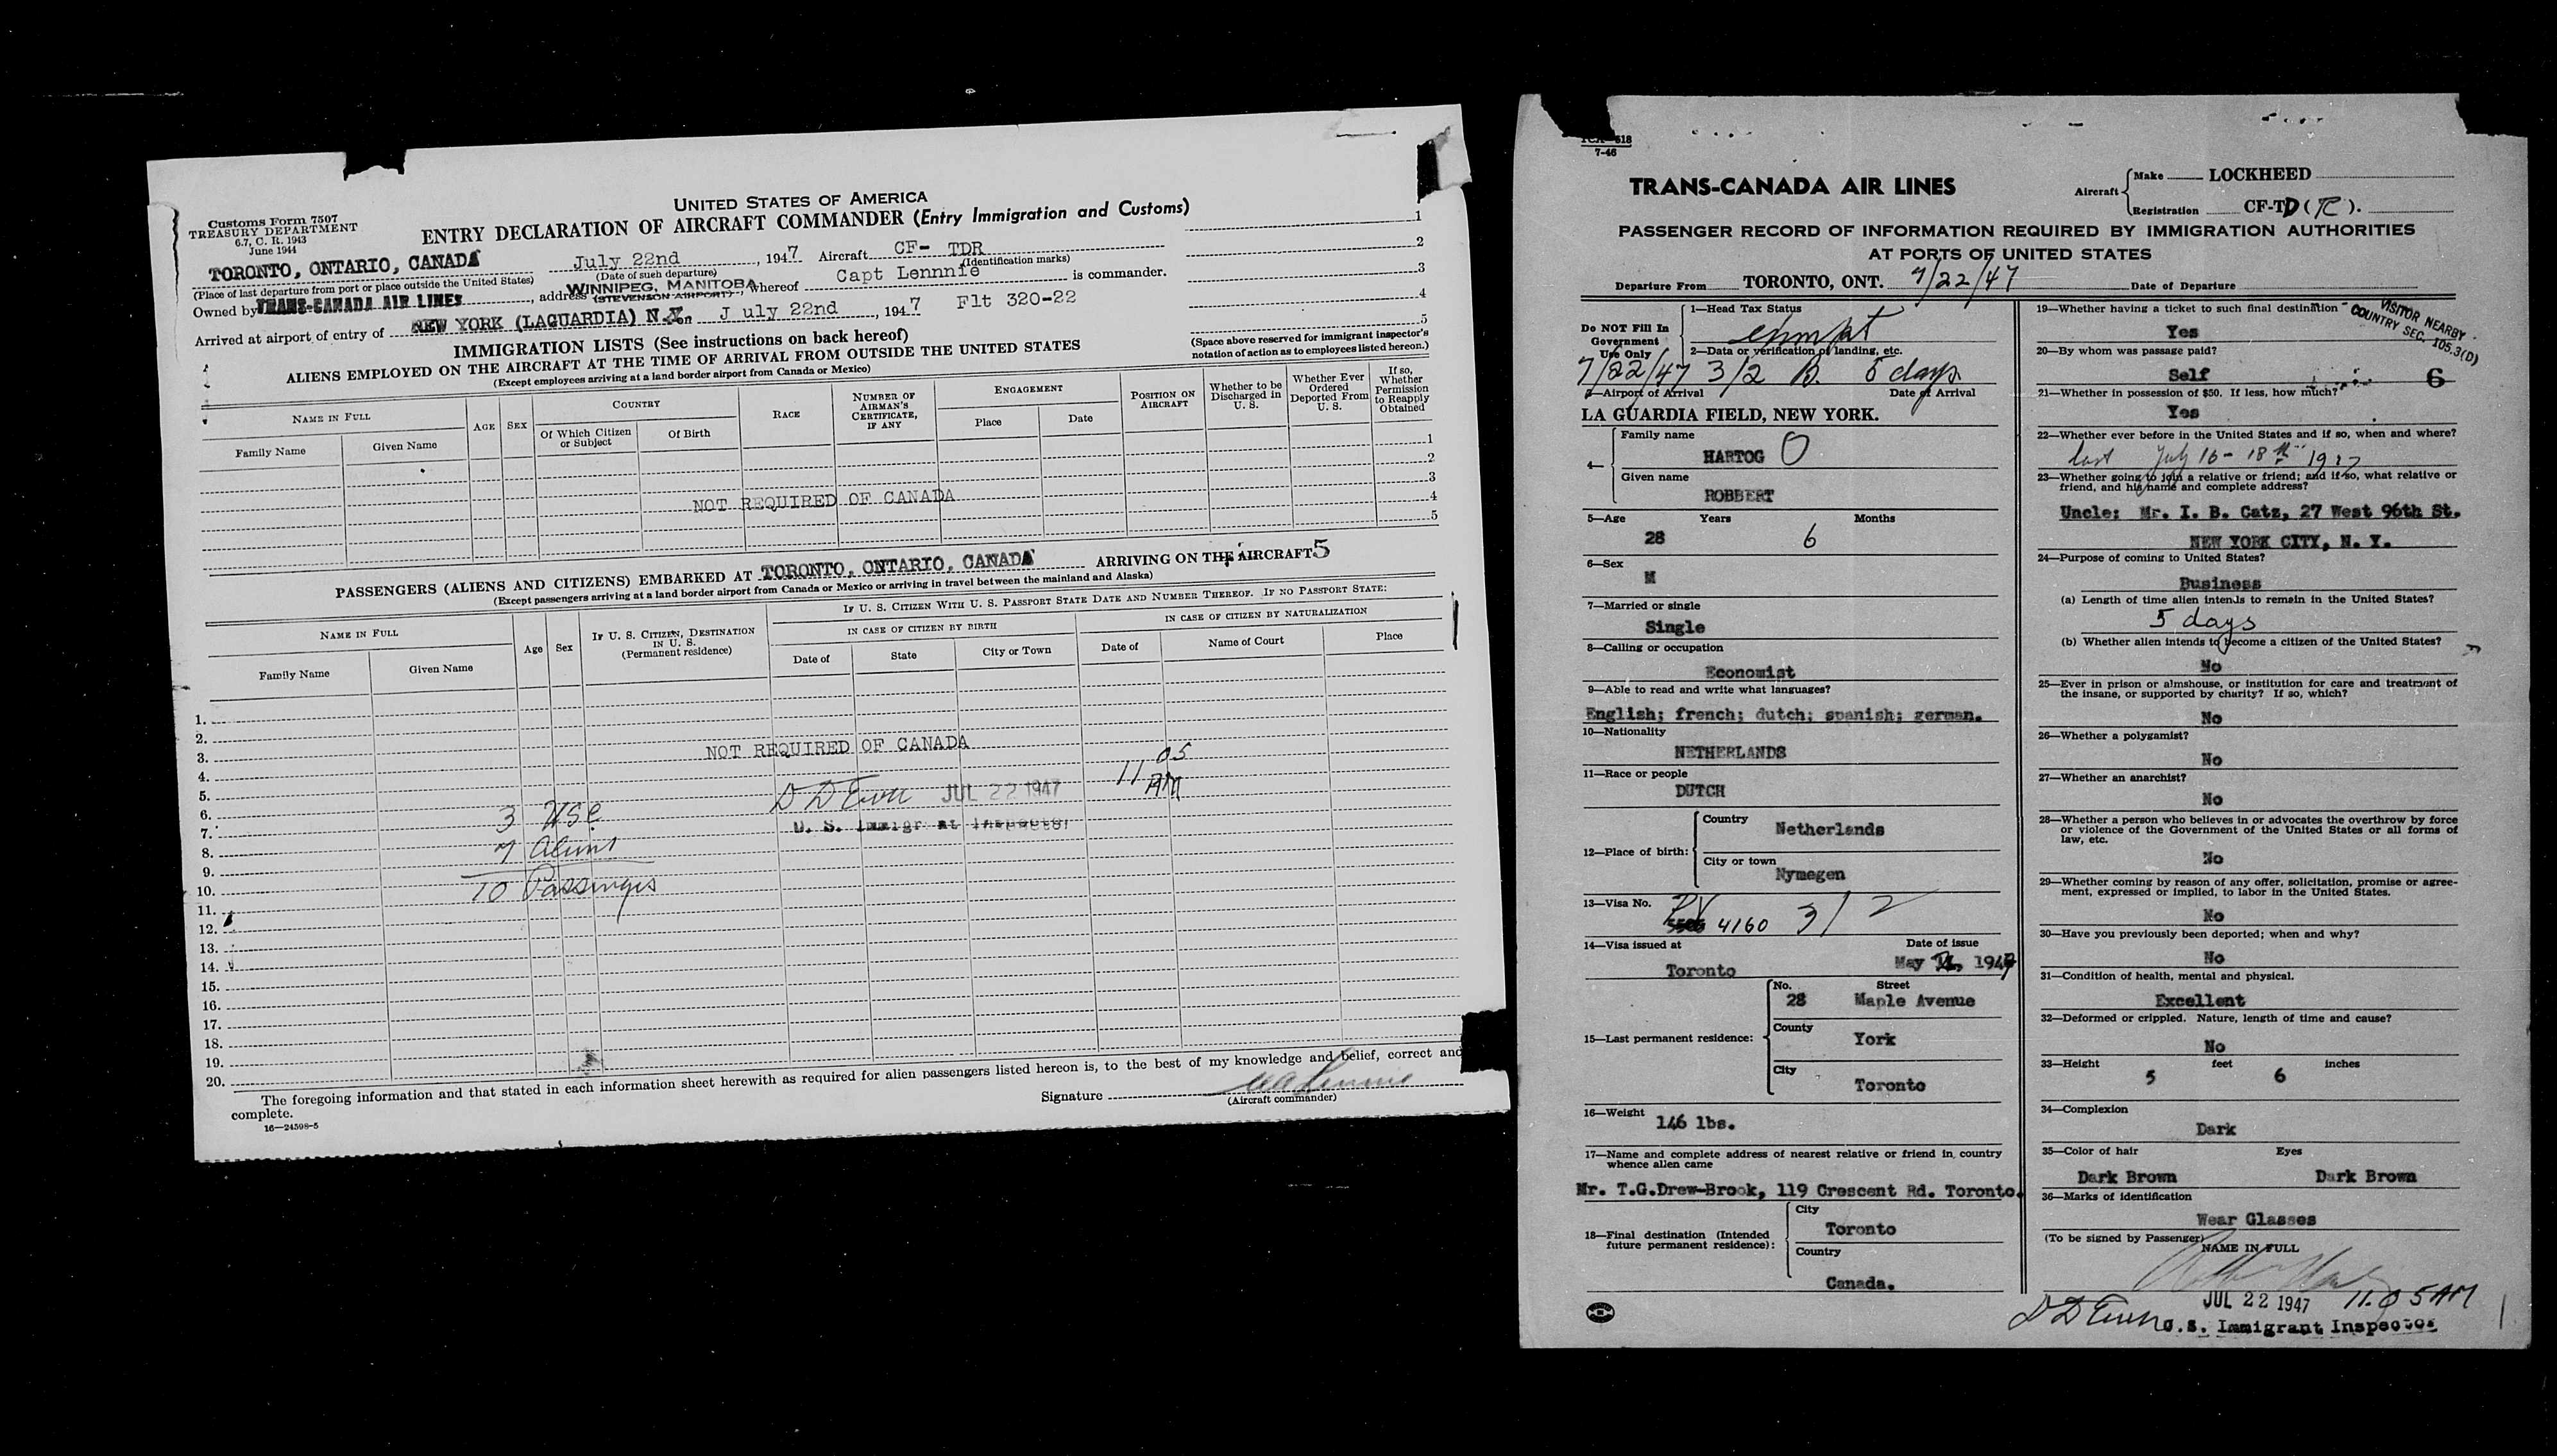 UNITED STATES OF AMERICA
Customs Form 7507
TREASURY DEPARTMENT
6.7, C. R. 1943
June 1944
ENTRY DECLARATION OF AIRCRAFT COMMANDER (Entry Immigration and Customs)
TORONTO, ONTARIO, CANADA July 22nd, 1947 Aircraft CF- TDR
(Place of last departure from port or place outside the United States) (Date of such departure) (Identification marks)
Owned by TRANS-CANADA AIR LINES, address WINNIPEG, MANITOBA (STEVENSON AIRPORT), whereof Capt Lennnie is commander.
Arrived at airport of entry of NEW YORK (LAGUARDIA) N.Y. on J uly 22nd, 1947 Flt 320-22
1
2
3
4
5
IMMIGRATION LISTS (See instructions on back hereof)
(Space above reserved for immigrant inspector's notation of action as to employees listed hereon.)
ALIENS EMPLOYED ON THE AIRCRAFT AT THE TIME OF ARRIVAL FROM OUTSIDE THE UNITED STATES
(Except employees arriving at a land border airport from Canada or Mexico)
NAME IN FULL
Family Name
Given Name
AGE
SEX
COUNTRY
Of Which Citizen or Subject
Of Birth
RACE
NUMBER OF AIRMAN'S CERTIFICATE, IF ANY
ENGAGEMENT
Place
Date
POSITION ON AIRCRAFT
Whether to be Discharged in U. S.
Whether Ever Ordered Deported From U. S.
If so, Whether Permission to Reapply Obtained
1
2
3
4
5
NOT REQUIRED OF CANADA
PASSENGERS (ALIENS AND CITIZENS) EMBARKED AT TORONTO, ONTARIO, CANADA ARRIVING ON THE AIRCRAFT 5
(Except passengers arriving at a land border airport from Canada or Mexico or arriving in travel between the mainland and Alaska)
NAME IN FULL
Family Name
Given Name
Age
Sex
IF U. S. CITIZEN, DESTINATION IN U. S.
(Permanent residence)
IF U. S. CITIZEN WITH U. S. PASSPORT STATE DATE AND NUMBER THEREOF. IF NO PASSPORT STATE:
IN CASE OF CITIZEN BY BIRTH
Date of
State
City or Town
IN CASE OF CITIZEN BY NATURALIZATION
Date of
Name of Court
Place
1.
2.
3.
4.
5.
6.
7.
8.
9.
10.
11.
12.
13.
14.
15.
16.
17.
18.
19.
20.
NOT REQUIRED OF CANADA
D D Ewen JUL 22 1947 11 05 AM
U. S. Immigrant Inspector
3 USC
7 Aliens
10 Passengers
The foregoing information and that stated in each information sheet herewith as required for alien passengers listed hereon is, to the best of my knowledge and belief, correct and
complete.
Signature
(Aircraft commander)
16—24598-5
618
7-46
TRANS-CANADA AIR LINES
Aircraft
Make LOCKHEED
Registration CF-TD (R).
PASSENGER RECORD OF INFORMATION REQUIRED BY IMMIGRATION AUTHORITIES
AT PORTS OF UNITED STATES
Departure From TORONTO, ONT. 7/22/47 Date of Departure
Do NOT Fill In
Government
Use Only
1—Head Tax Status
exempt
2—Data or verification of landing, etc.
7/22/47 3/2 B. 5 days
3—Airport of Arrival Date of Arrival
LA GUARDIA FIELD, NEW YORK.
4—
Family name
HARTOG O
Given name
ROBBERT
5—Age Years Months
28 6
6—Sex
M
7—Married or single
Single
8—Calling or occupation
Economist
9—Able to read and write what languages?
English; french; dutch; spanish; german.
10—Nationality
NETHERLANDS
11—Race or people
DUTCH
12—Place of birth:
Country
Netherlands
City or town
Nymegen
13—Visa No.
PV 4160 3/2
14—Visa issued at Date of issue
Toronto May 1947
15—Last permanent residence:
No. Street
28 Maple Avenue
County
York
City
Toronto
16—Weight
146 lbs.
17—Name and complete address of nearest relative or friend in country
whence alien came
Mr. T.G.Drew-Brook, 119 Crescent Rd. Toronto.
18—Final destination (Intended
future permanent residence):
City
Toronto
Country
Canada.
19—Whether having a ticket to such final destination
Yes
VISITOR NEARBY
COUNTRY SEC. 105.3(D)
20—By whom was passage paid?
Self
6
21—Whether in possession of $50. If less, how much?
Yes
22—Whether ever before in the United States and if so, when and where?
last July 16 - 18th 1947
23—Whether going to join a relative or friend; and if so, what relative or
friend, and his name and complete address?
Uncle; Mr. I. B. Catz, 27 West 96th St.
NEW YORK CITY, N. Y.
24—Purpose of coming to United States?
Business
(a) Length of time alien intends to remain in the United States?
5 days
(b) Whether alien intends to become a citizen of the United States?
No
25—Ever in prison or almshouse, or institution for care and treatment of
the insane, or supported by charity? If so, which?
No
26—Whether a polygamist?
No
27—Whether an anarchist?
No
28—Whether a person who believes in or advocates the overthrow by force
or violence of the Government of the United States or all forms of
law, etc.
No
29—Whether coming by reason of any offer, solicitation, promise or agree-
ment, expressed or implied, to labor in the United States.
No
30—Have you previously been deported; when and why?
No
31—Condition of health, mental and physical.
Excellent
32—Deformed or crippled. Nature, length of time and cause?
No
33—Height feet inches
5 6
34—Complexion
Dark
35—Color of hair Eyes
Dark Brown Dark Brown
36—Marks of identification
Wear Glasses
(To be signed by Passenger)
NAME IN FULL
JUL 22 1947 11.05 AM
D D Ewen U.S. Immigrant Inspector